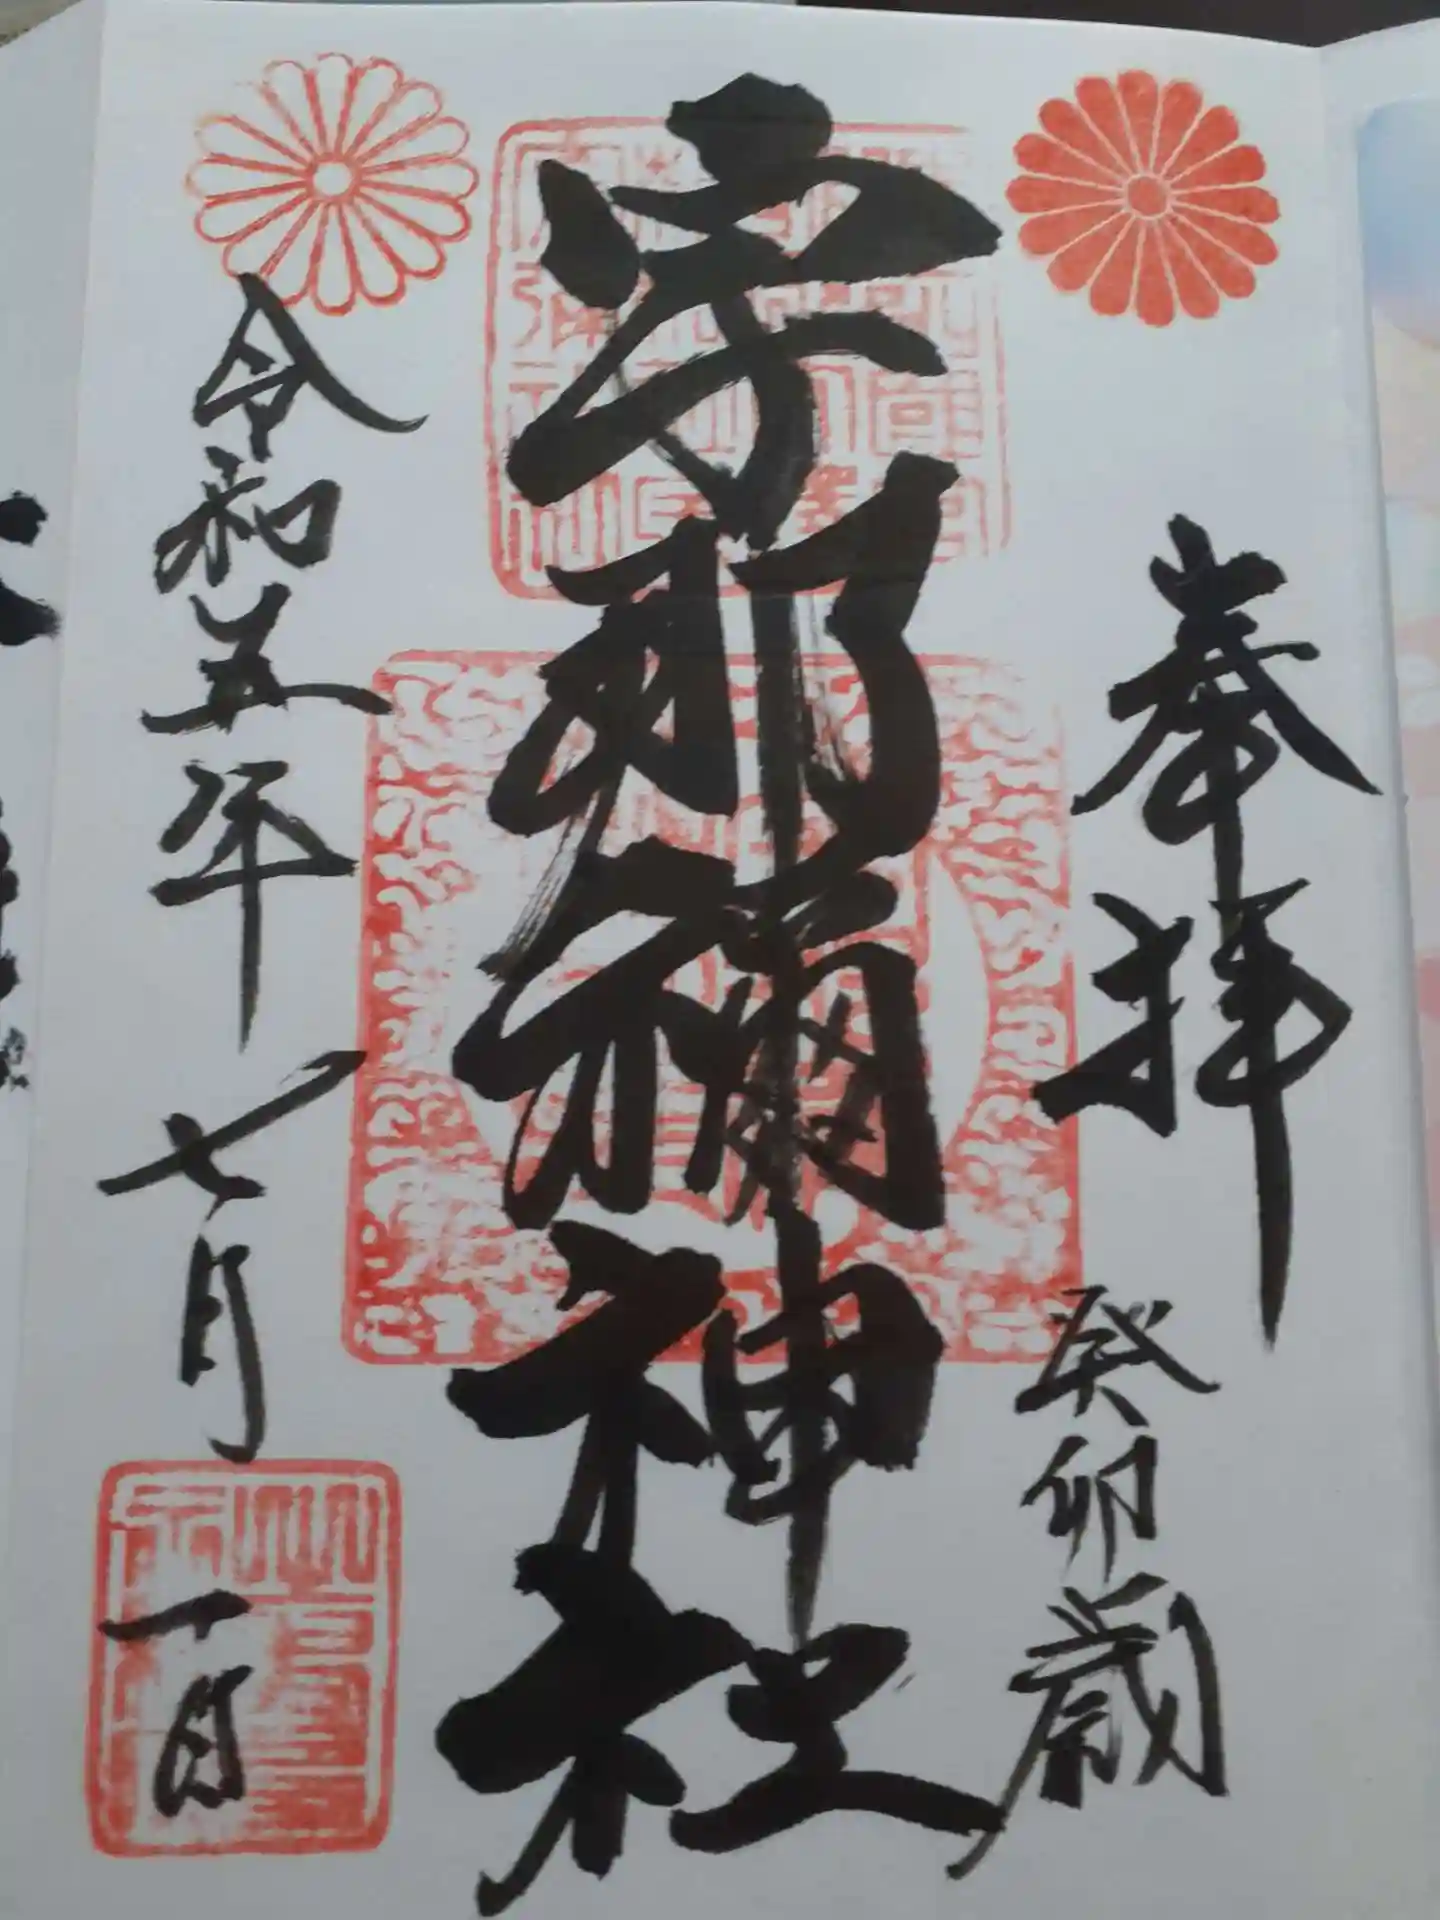 奉拝 癸卯歳
宇那禰神社
令和五年七月一日